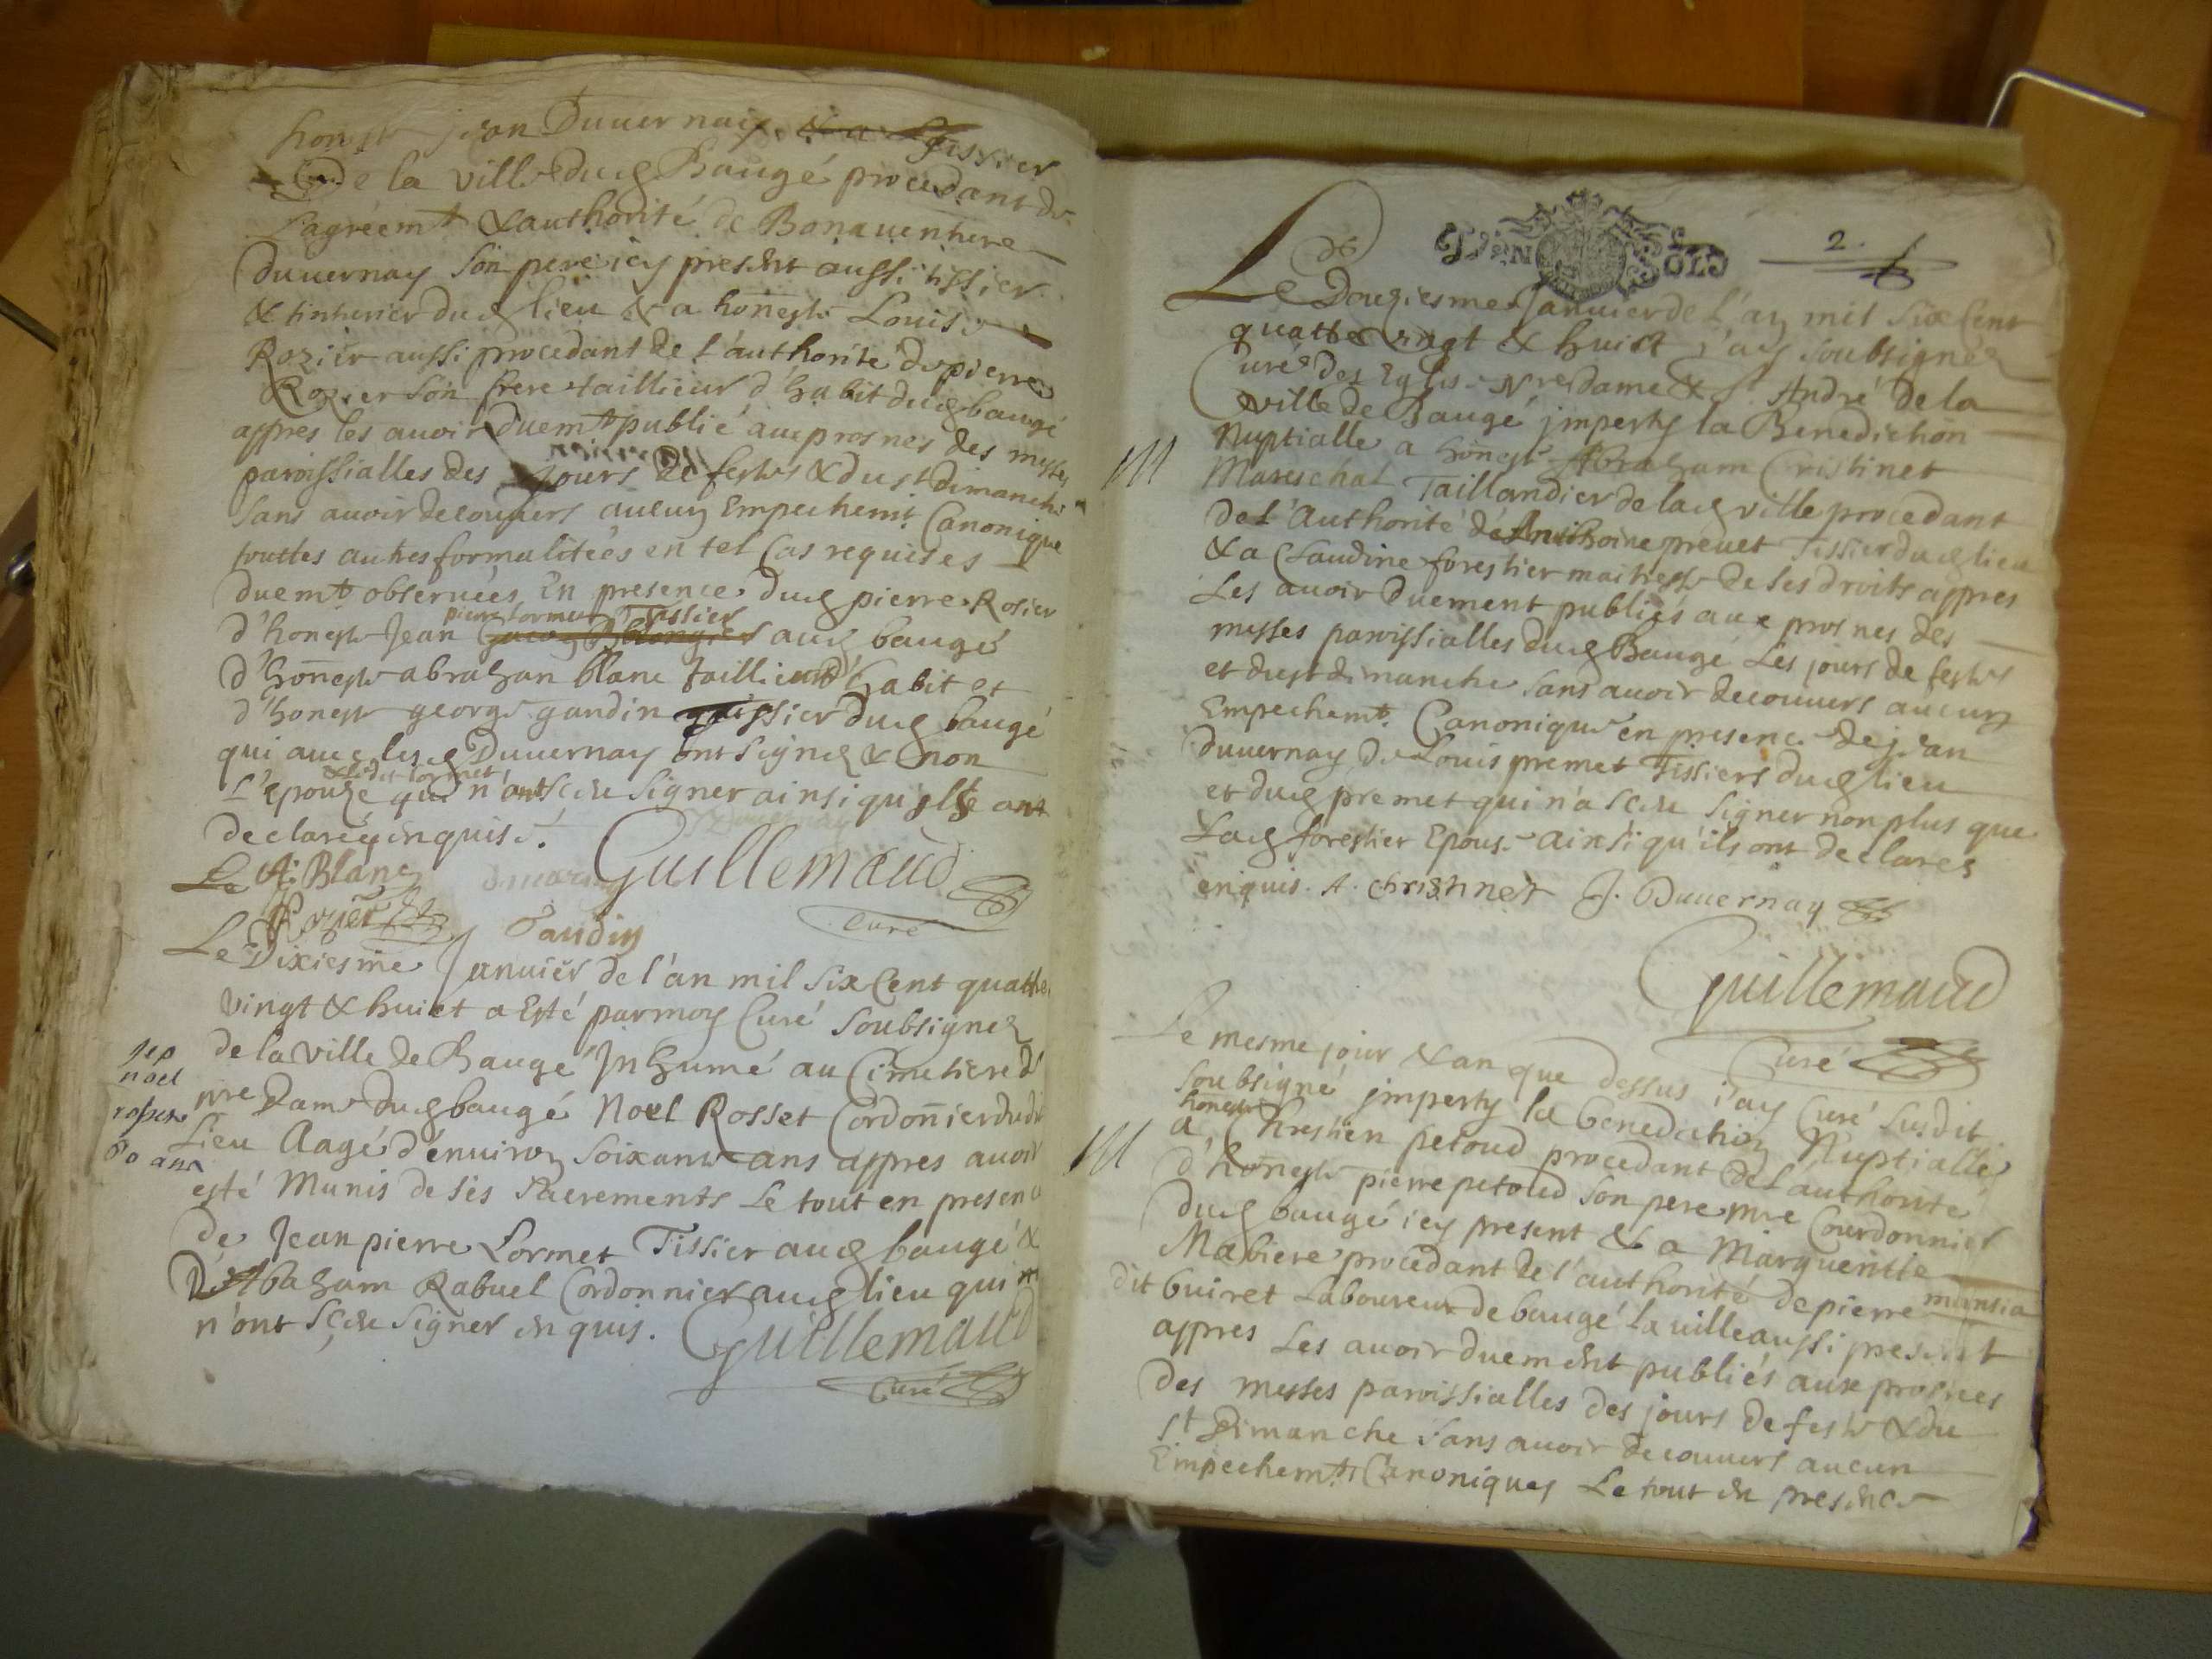 honeste jean Duuernay tissier
de la ville dud Baugé procedant de
l'agréemt & authorité de Bonauenture
duuernay son pere icy present aussi tissier
& tinturier dud lieu & a honeste Louise
Rozier aussi procedant de l'authorité de pierre
Rozier son frere taillieur d'habit dud baugé
appres les auoir duemt publié aux prosnes des messes
paroissialles des jours de festes & du st dimanche
sans auoir decouuers aucuy Empechemt Canonique
touttes autres formalitées en tel Cas requises
duemt obseruées En presence dud pierre Rosier
pierre lormet Tissier
d'honeste Jean aud baugé
d'honeste abrahan blanc taillieur d'habit et
d'honeste george gandin tissier dud baugé
qui auec lesd Duuernay ont signez & non
& ledit lormet
L'épouze qui n'ont sceu signer ainsi qu'ils ont
declaré enquise.
Guillemaud
A. Blanc
Curé
P Rozier
Gandin
Le Dixiesme Januier de l'an mil six Cent quattre
vingt & huict a Esté par moy Curé soubsignez
de la ville de Baugé Jnhumé au Cimetiere de
nre dame dud baugé Noel Rosset Cordonnier dudit
Lieu Aagé d'enuiroy soixante ans appres auoir
esté Munis de ses Sacrements Le tout en presence
de Jean pierre Lormet Tissier aud baugé &
D'Abraham Rabuel Cordonnier aud lieu qui
n'ont sceu signer enquis. Guillemaud
Curé
sep
noel
rosset
60 ans
VN SOLS
2.
Le Douziesme Januier de l'an mil six Cent
quattre vingt & huict j'ay soubsignez
Curé des Eglises Nre dame & St André de la
ville de Baugé jmperty la Benediction
Nuptialle a honeste Abraham Cristinet
M
Mareschal Taillandier de lad ville procedant
de l'Authorité de Anthoine preuet Tissier dud lieu
& a Claudine forestier maitresse de ses droits appres
Les auoir duement publiés aux prosnes des
messes paroissialles dud Baugé Les jours de festes
et du st dimanche sans auoir decouuers aucuy
Empechemt Canonique en presence de jean
duuernay de Louis premet Tissiers dud lieu
et dud premet qui n'a sceu signer non plus que
Lad forestier Epouse ainsi qu'ils ont declarés
enquis. A. christinet J. Duuernay
Guillemaud
Curé
Le mesme jour & an que dessus j'ay Curé susdit
soubsigné jmperty la benediction Nuptialle
honeste
M
a Chrestien petoud procedant de l'authorité
d'honeste pierre petoud son pere mre Courdonnier
dud baugé icy present & a Marguerite
Mabiere procedant de l'authorité de pierre
dit buiret Laboureur de baugé la uille aussi present
appres Les auoir duement publiés aux prosnes
des messes paroissialles des jours de feste & du
st Dimanche sans auoir decouuers aucun
Empechemt Canoniques Le tout en presence